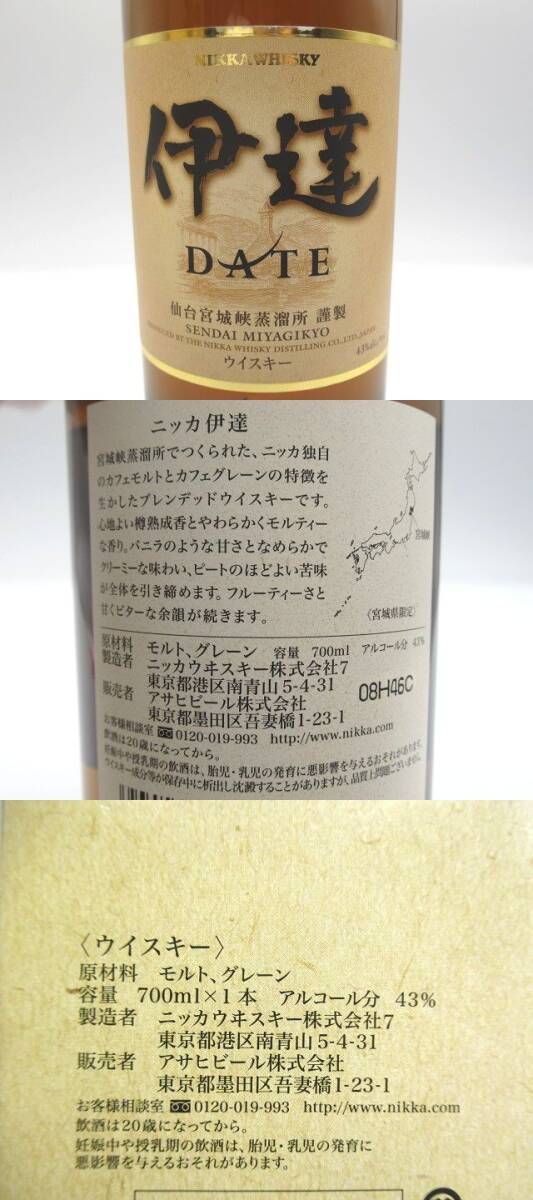 NIKKA WHISKY
伊達
DATE
仙台宮城峡蒸溜所 謹製
SENDAI MIYAGIKYO
PRODUCED BY THE NIKKA WHISKY DISTILLING CO., LTD. JAPAN
ウイスキー
43%
ニッカ伊達
宮城峡蒸溜所でつくられた、ニッカ独自
のカフェモルトとカフェグレーンの特徴を
生かしたブレンデッドウイスキーです。
心地よい樽熟成香とやわらかくモルティー
な香り。バニラのような甘さとなめらかで
クリーミーな味わい、ピートのほどよい苦味
が全体を引き締めます。フルーティーさと
甘くビターな余韻が続きます。
〈宮城県限定〉
原材料 モルト、グレーン 容量 700ml アルコール分 43%
製造者 ニッカウヰスキー株式会社7
東京都港区南青山5-4-31
販売者 アサヒビール株式会社
東京都墨田区吾妻橋1-23-1
08H46C
お客様相談室 0120-019-993 http://www.nikka.com
飲酒は20歳になってから。
妊娠中や授乳期の飲酒は、胎児・乳児の発育に悪影響を与えるおそれがあります。
ウイスキー成分等が保存中に析出し沈澱することがありますが、品質上問題ございません。
〈ウイスキー〉
原材料 モルト、グレーン
容量 700ml×1本 アルコール分 43%
製造者 ニッカウヰスキー株式会社7
東京都港区南青山5-4-31
販売者 アサヒビール株式会社
東京都墨田区吾妻橋1-23-1
お客様相談室 0120-019-993 http://www.nikka.com
飲酒は20歳になってから。
妊娠中や授乳期の飲酒は、胎児・乳児の発育に
悪影響を与えるおそれがあります。